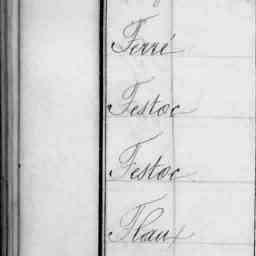 Ferré
Festoc
Festoc
Flaux